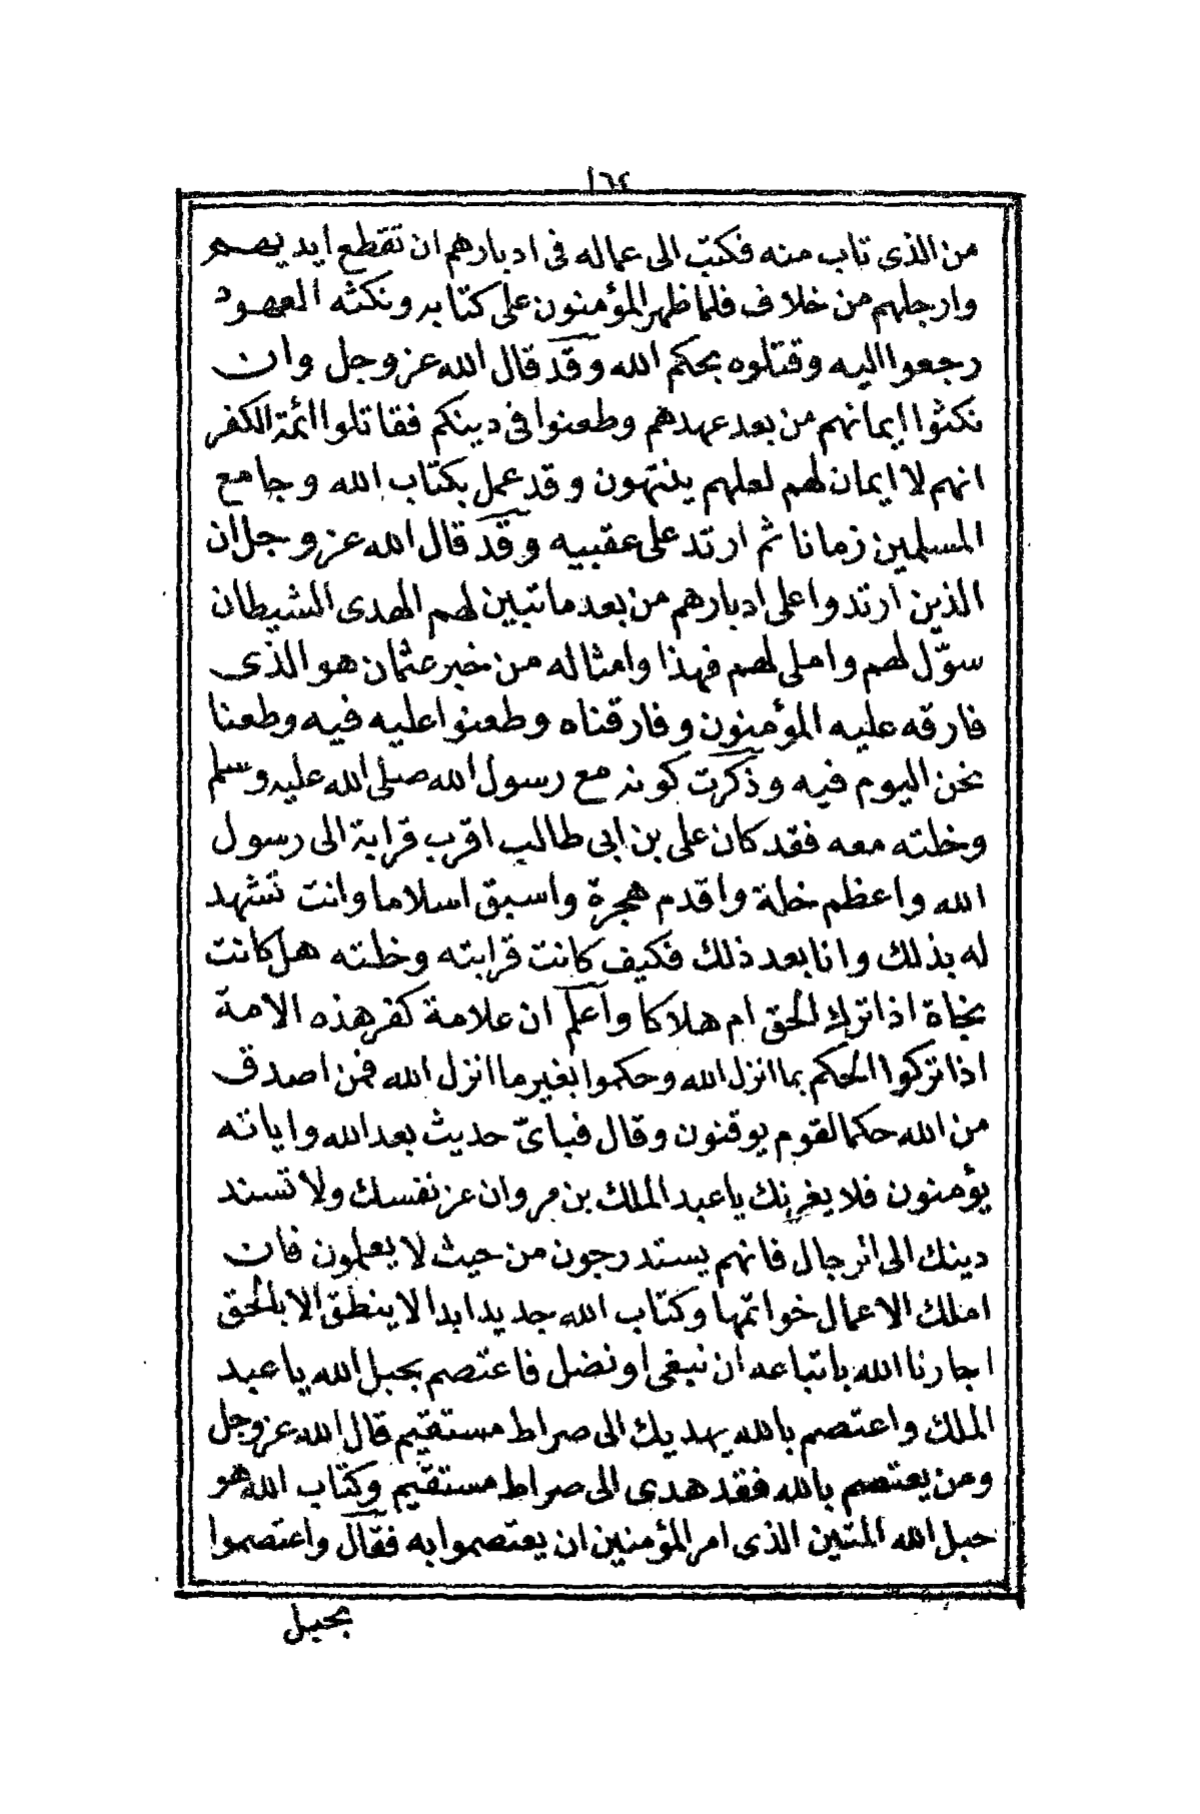 ١٦٤
من الذى تاب منه فكتب الى عماله فى ادبارهم ان تقطع ايديهم
وارجلهم من خلاف فلما ظهر المؤمنون على كتابه ونكثه العهود
رجعوا اليه وقتلوه بحكم الله وقد قال الله عز وجل وان
نكثوا ايمانهم من بعد عهدهم وطعنوا فى دينكم فقاتلوا ائمة الكفر
انهم لا ايمان لهم لعلهم ينتهون وقد عمل بكتاب الله وجامع
المسلمين زمانا ثم ارتد على عقبيه وقد قال الله عز وجل ان
الذين ارتدوا على ادبارهم من بعد ما تبين لهم الهدى الشيطان
سوّل لهم واملى لهم فهذا وامثاله من خبر عثمان هو الذى
فارقه عليه المؤمنون وفارقناه وطعنوا عليه فيه وطعنا
نحن اليوم فيه وذكرت كونه مع رسول الله صلى الله عليه وسلم
وخلته معه فقد كان على بن ابى طالب اقرب قرابة الى رسول
الله واعظم خلة واقدم هجرة واسبق اسلاما وانت تشهد
له بذلك وانا بعد ذلك فكيف كانت قرابته وخلته هل كانت
نجاة اذا ترك الحق ام هلاكا واعلم ان علامة كفر هذه الامة
اذا تركوا الحكم بما انزل الله وحكموا بغير ما انزل الله فمن اصدق
من الله حكما لقوم يوقنون وقال فباىّ حديث بعد الله واياته
يؤمنون فلا يغرنك يا عبد الملك بن مروان عز نفسك ولا تسند
دينك الى الرجال فانهم يستدرجون من حيث لا يعلمون فان
املك الاعمال خواتمها وكتاب الله جديد ابدا لا ينطق الا بالحق
اجارنا الله باتباعه ان نبغى او نضل فاعتصم بحبل الله يا عبد
الملك واعتصم بالله يهديك الى صراط مستقيم قال الله عز وجل
ومن يعتصم بالله فقد هدى الى صراط مستقيم وكتاب الله هو
حبل الله المتين الذى امر المؤمنين ان يعتصموا به فقال واعتصموا
بحبل